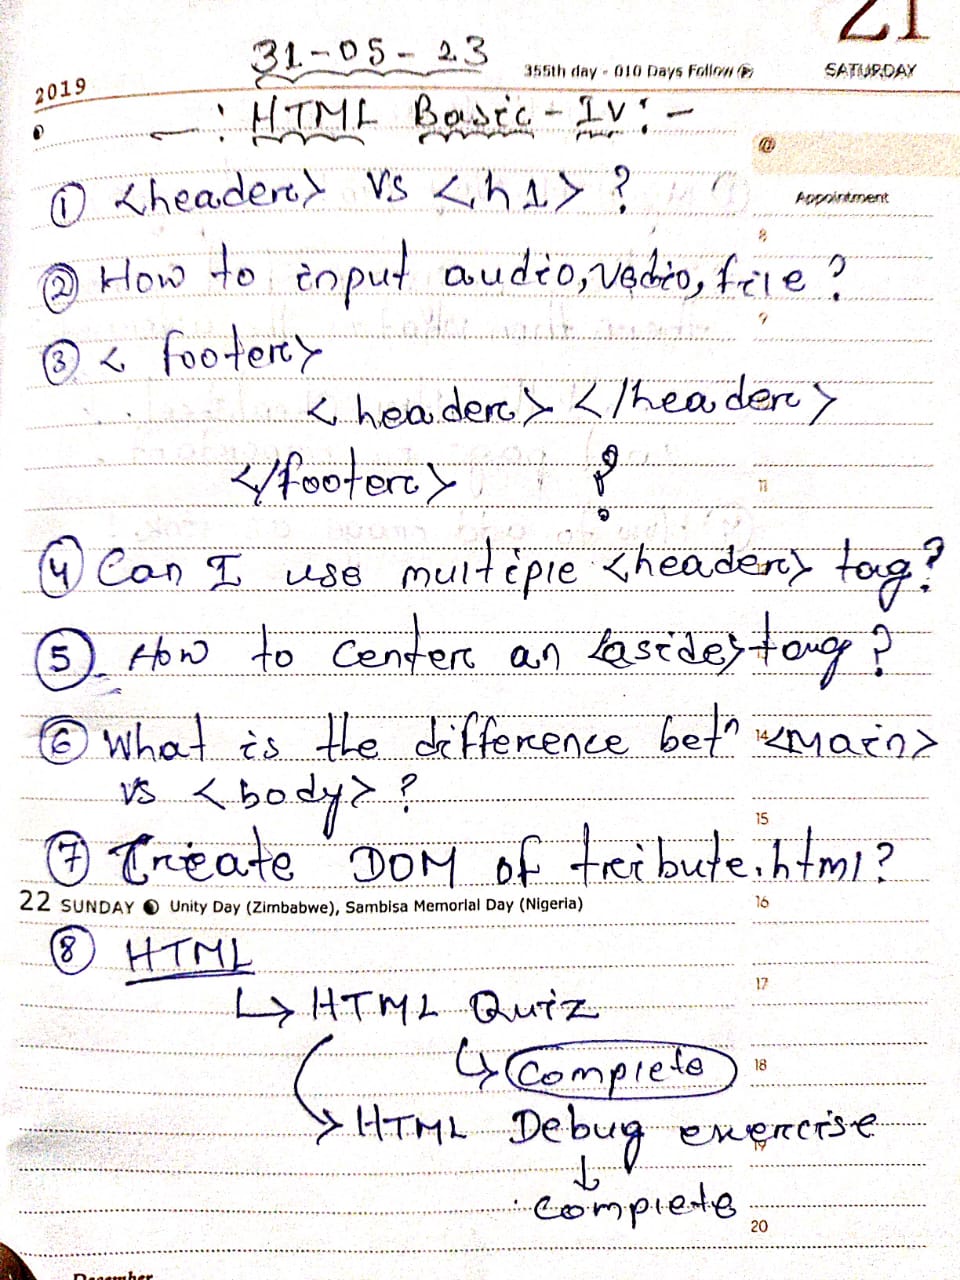 21
31-05-23
355th day - 010 Days Follow
SATURDAY
2019
-: HTML Basic - IV :-
@
① <header> vs <h1> ?
Appointment
8
② How to input audio, vedio, file ?
9
③ < footer>
<header> </header>
</footer> ?
11
④ Can I use multiple <header> tag?
⑤ How to center an <aside> tag ?
⑥ What is the difference betn <main>
14
vs <body> ?
15
⑦ Create DOM of tribute.html?
22 SUNDAY Unity Day (Zimbabwe), Sambisa Memorial Day (Nigeria)
16
⑧ HTML
17
↳ HTML Quiz
↳ Complete
18
→ HTML Debug exercise
19
↓
complete
20
December